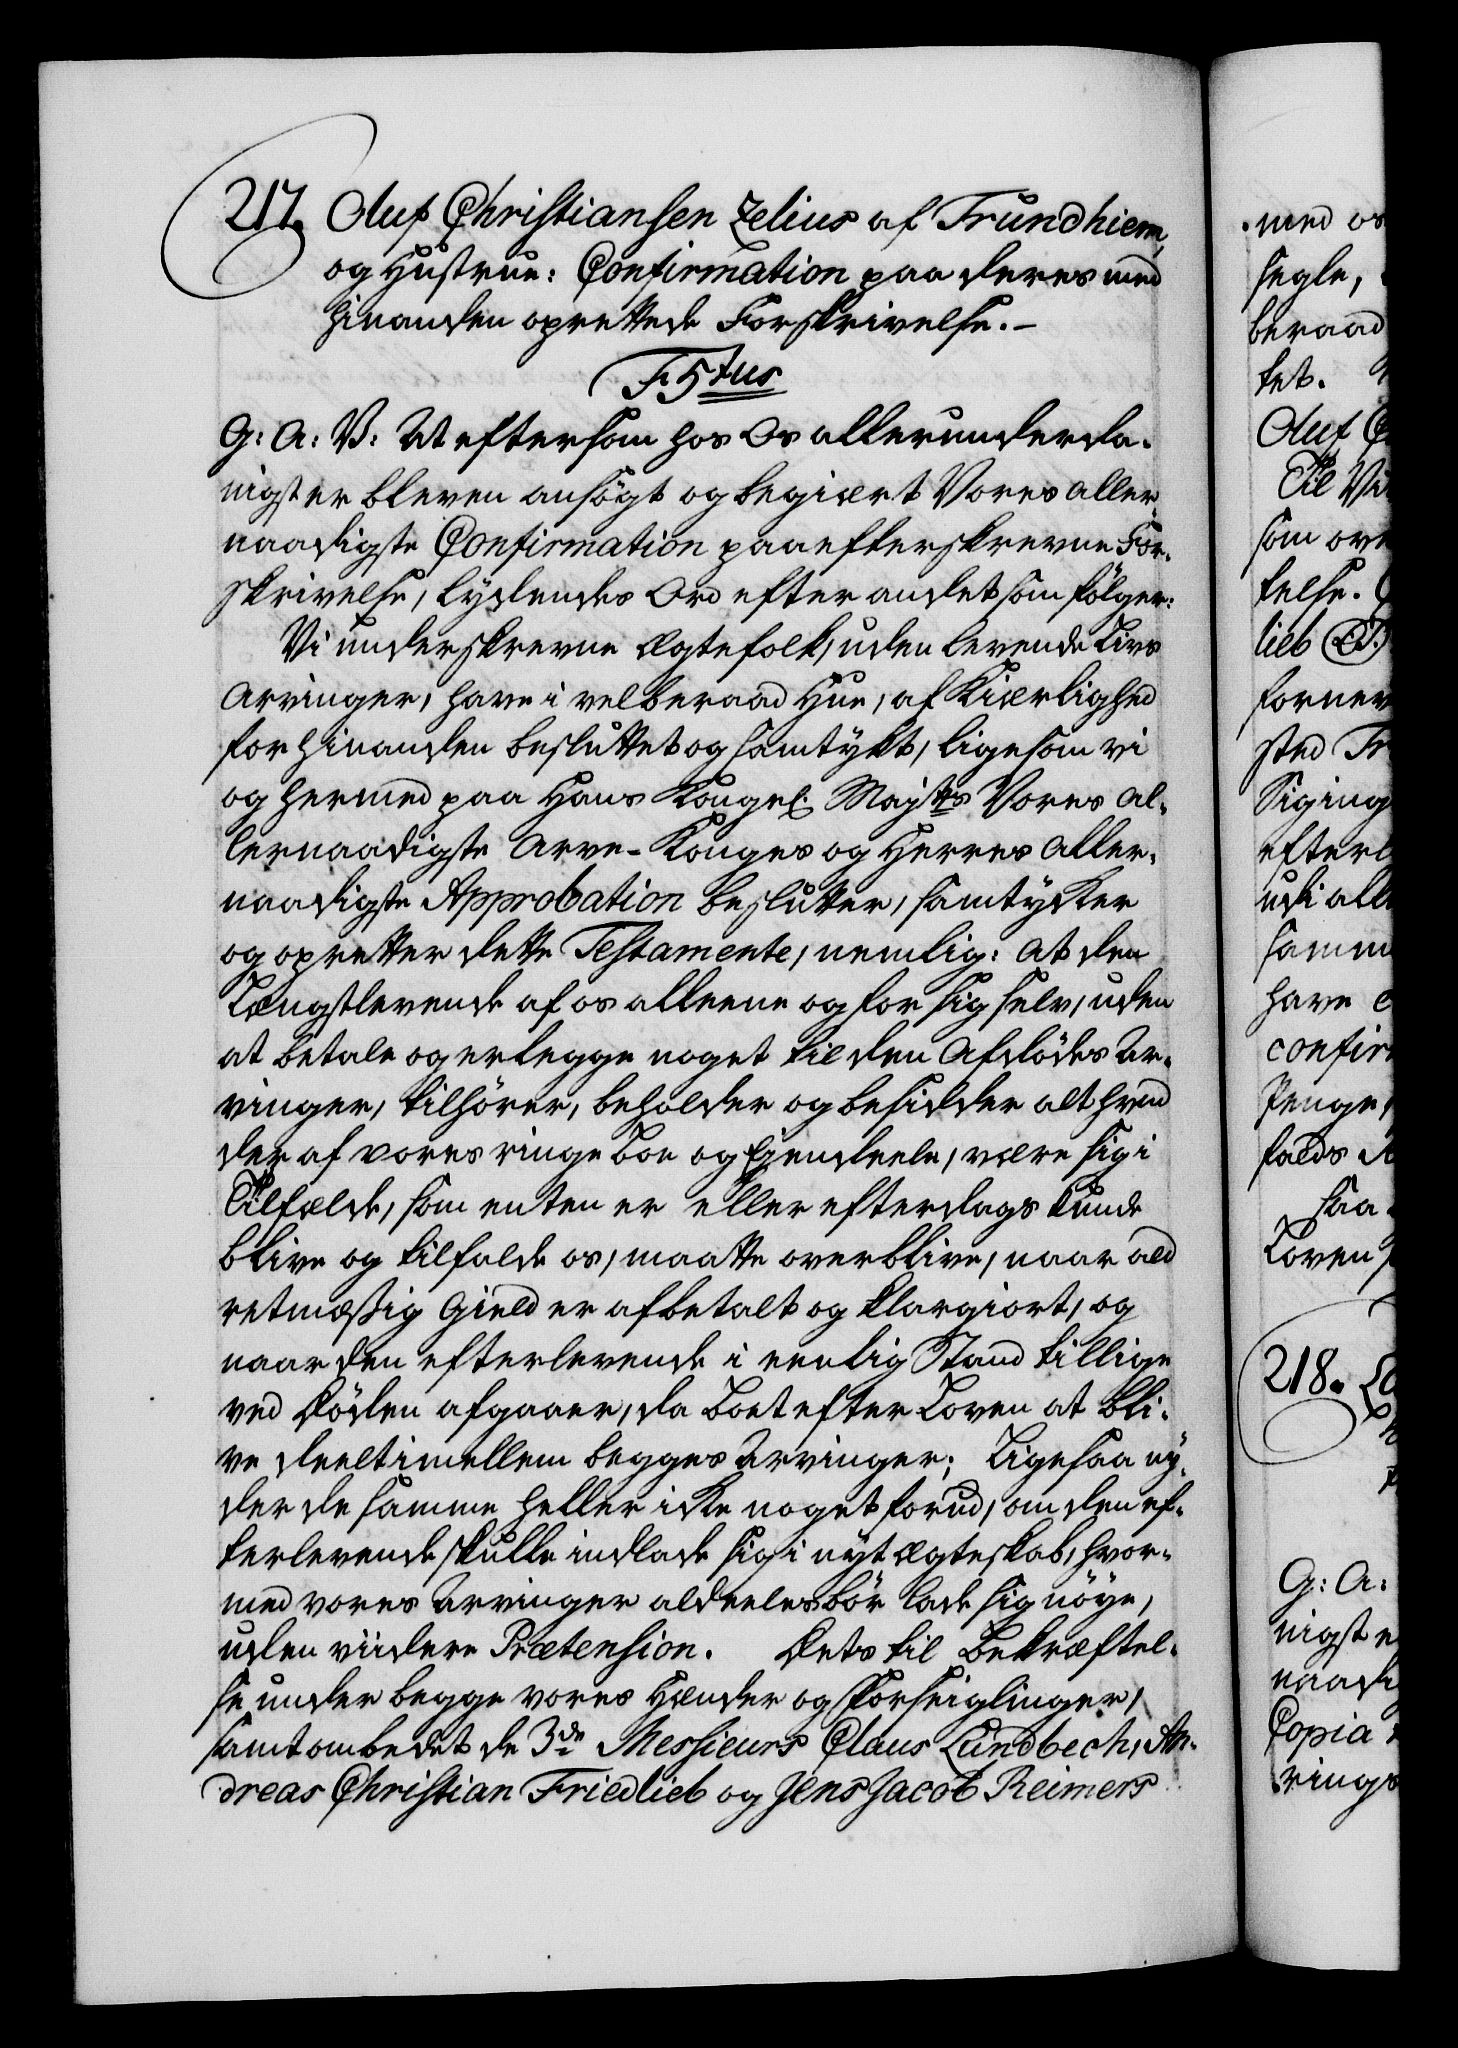 217. Oluf Christiansen Zelius af Trundhiem,
og Hustrue: Confirmation paa deres med
hinanden oprettede Forskrivelse.-
F 5tus
G: A: V: At eftersom hos Os allerunderda-
nigst er bleven ansögt og begiært Vores aller-
naadigste Confirmation paa efterskrevne For-
skrivelse, lÿdendes Ord efter andet som fölger:
Vi underskrevne Ægtefolk, uden levende Livs
Arvinger, have i velberaad Hue, af Kiærlighed
for hinanden besluttet og samtÿkt, ligesom vi
og hermed paa Hans Kongel. Majts Vores Al-
lernaadigste Arve-Konges og Herres Aller-
naadigste Approbation beslutter, samtÿcker
og opretter dette Testamente, nemlig: At den
Længstlevende af os alleene og for sig selv, uden
at betale og erlegge noget til den Afdödes Ar-
vinger, tilhörer, beholder og besidder alt hvad
der af vores ringe Boe og Ejendeele, være sig i
Tilfælde, som enten er eller efterdags kunde
blive og tilfalde os, maatte overblive, naar ald
retmæssig Gield er afbetalt og klargiort, og
naar den efterlevende i eenlig Stand tillige
ved Döden afgaaer, da Boet efter Loven at bli-
ve deelt imellem begges Arvinger; Ligesaa nÿ-
der de samme heller icke noget forud, om den ef-
terlevende skulle indlade sig i nÿt Ægteskab, hvor-
med vores Arvinger aldeeles bör lade sig nöÿe,
uden viidere Prætension. Dets til Bekræftel-
se under begge vores Hænder og Forseiglinger,
samt ombedet de 3de Messieurs Claus Lundbech, An-
dreas Christian Friedlieb og Jens Jacob Reimers
med os
segle,
beraad
tet.
Oluf
Til Vi
som ove
telse.
lieb (L.S.)
forne
sted Tr
Siging
efterl
udi all
samm
have
confir
Penge,
falds
saa
Loven
218.
G: A:
nigst e
naadi
Copia
rings